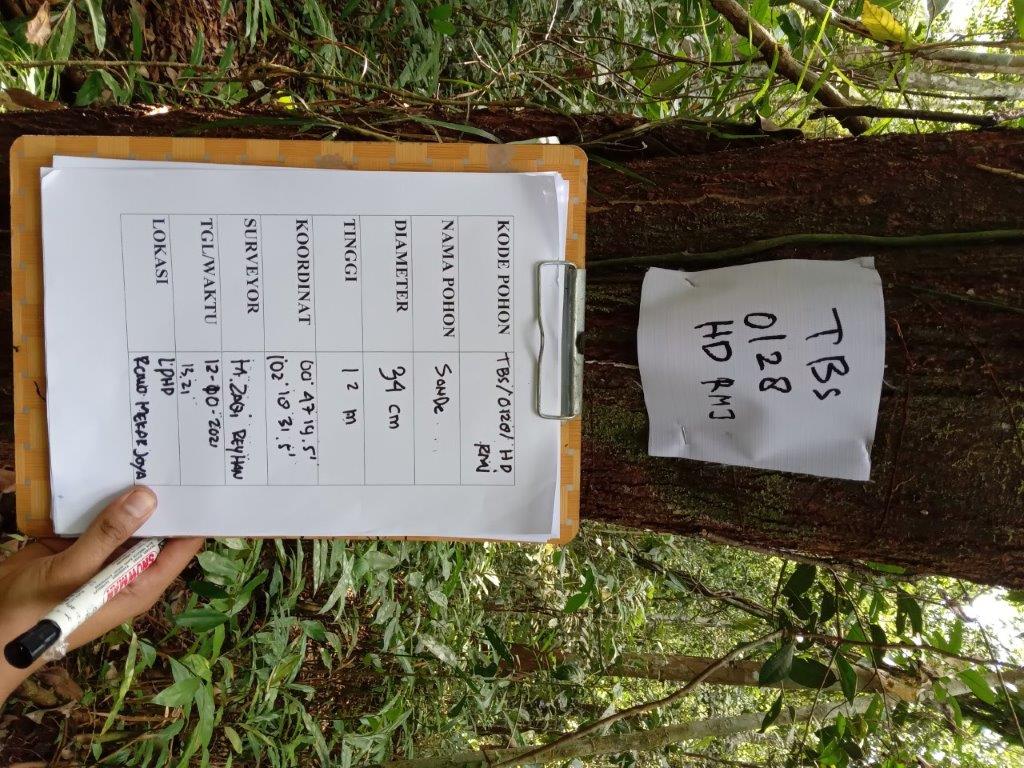 TBS
0128
HD RMJ
KODE POHON TBS/0128/ HD
RMJ
NAMA POHON SONDE
DIAMETER 34 cm
TINGGI 12 m
KOORDINAT 00° 47' 19.5"
102° 10' 31.5"
SURVEYOR M. ZAQI REYHAN
TGL/WAKTU 12-10-2021
13.21
LOKASI LPHD
ROWO MEKAR JAYA
SNOWMAN